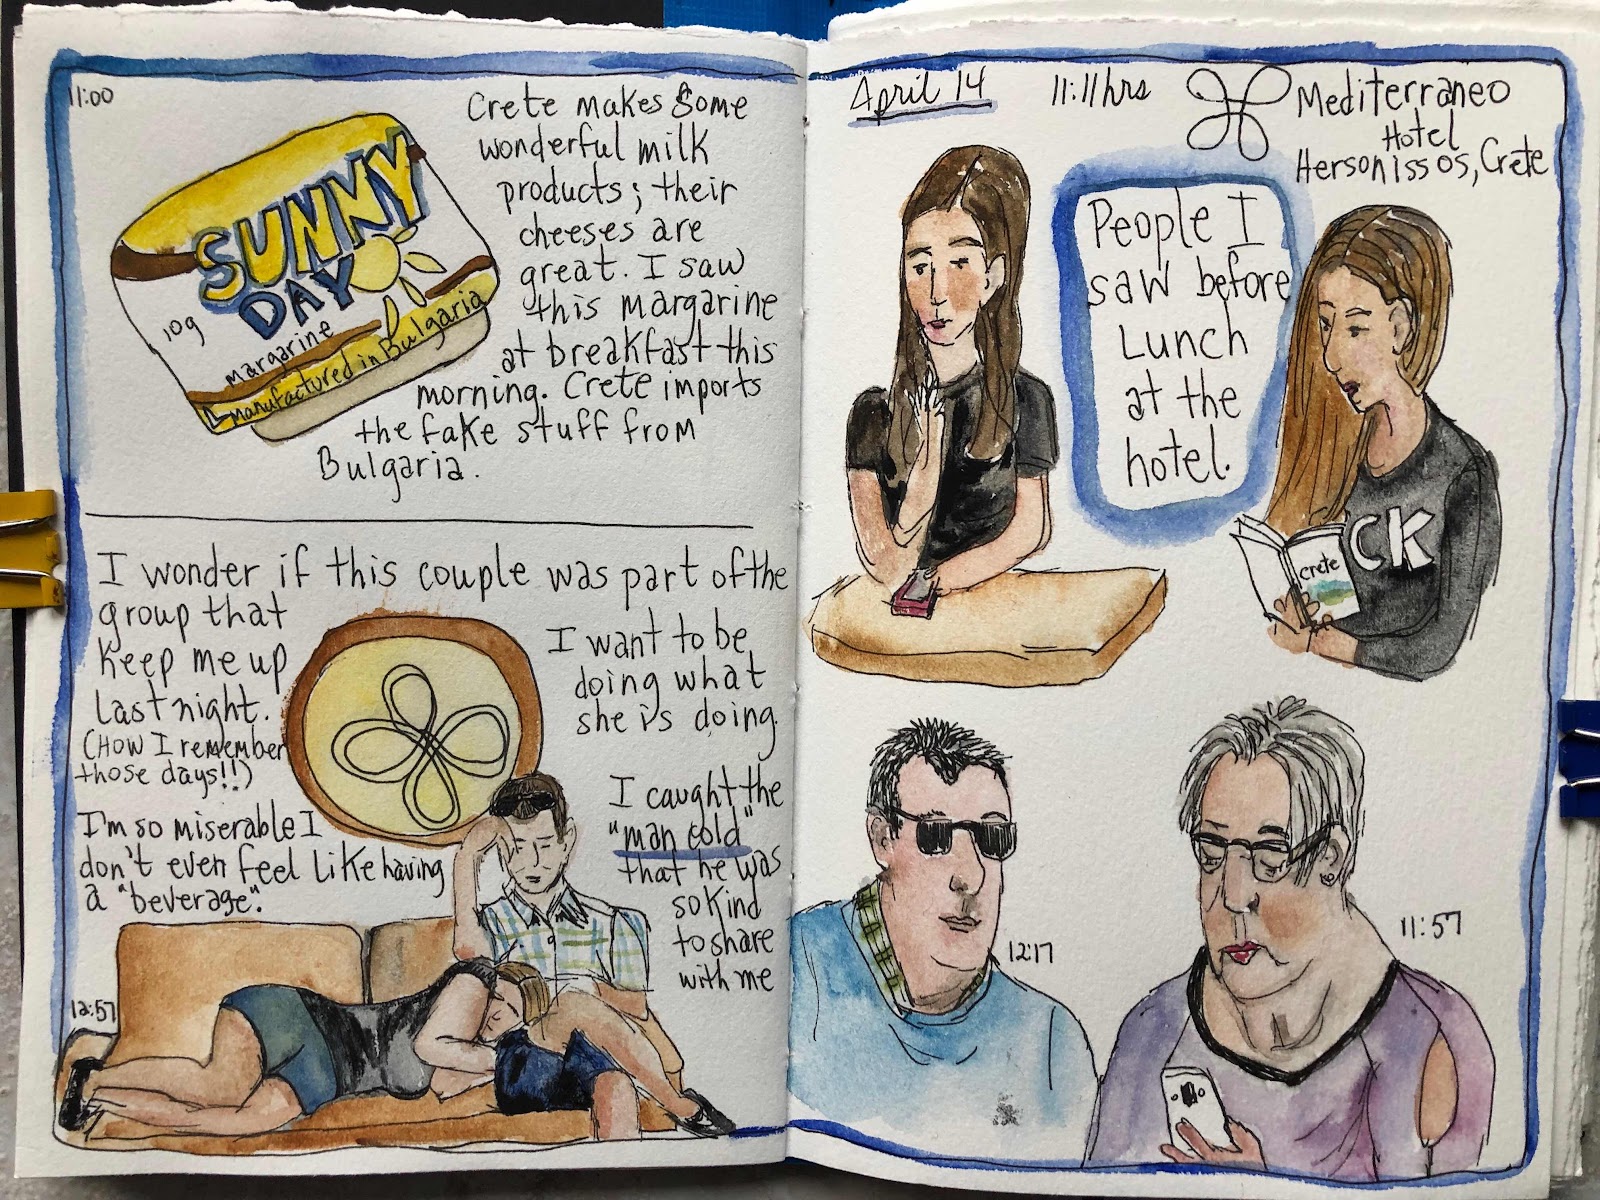 11:00
Crete makes some
wonderful milk
products; their
cheeses are
great. I saw
this margarine
at breakfast this
morning. Crete imports
the fake stuff from
Bulgaria.
SUNNY
DAY
10g
margarine
manufactured in Bulgaria
I wonder if this couple was part of the
group that
keep me up
last night.
(How I remember
those days!!)
I'm so miserable I
don't even feel like having
a "beverage".
I want to be
doing what
she is doing.
I caught the
"man cold"
that he was
so kind
to share
with me
12:57
April 14
11:11hrs
Mediterraneo
Hotel
Hersonissos, Crete
People I
saw before
Lunch
at the
hotel.
crete
CK
12:17
11:57